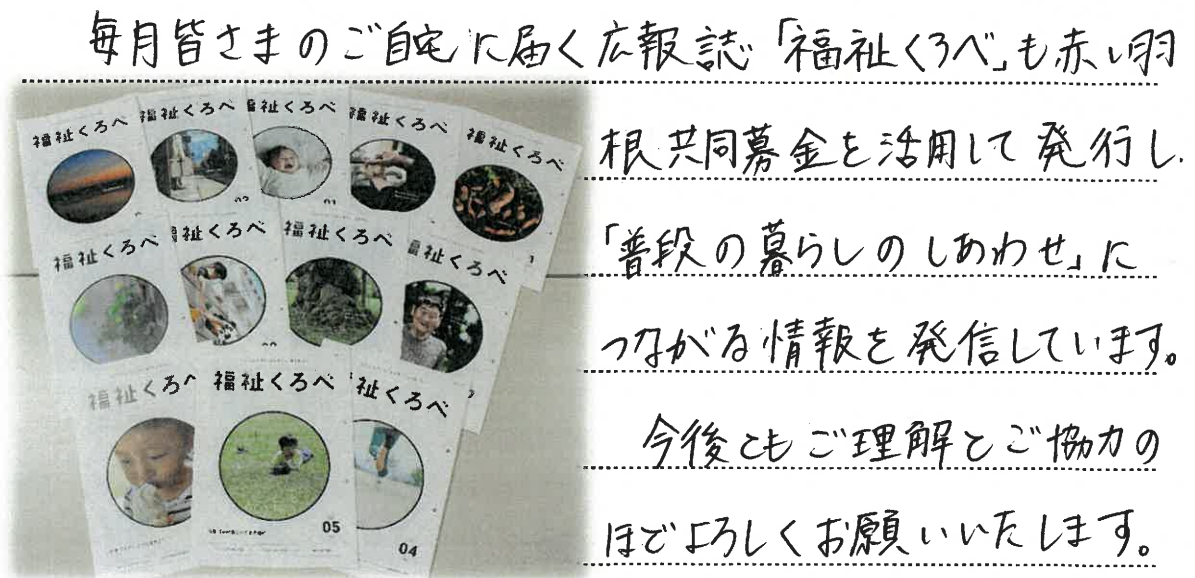 毎月皆さまのご自宅に届く広報誌「福祉くろべ」も赤い羽
根共同募金を活用して発行し、
「普段の暮らしのしあわせ」に
つながる情報を発信しています。
今後ともご理解とご協力の
ほどよろしくお願いいたします。
福祉くろべ
福祉くろべ
福祉くろべ
福祉くろべ
福祉くろべ
03
01
福祉くろべ
福祉くろべ
福祉くろべ
福祉くろべ
福祉くろべ
福祉くろべ
祉くろべ
05
04